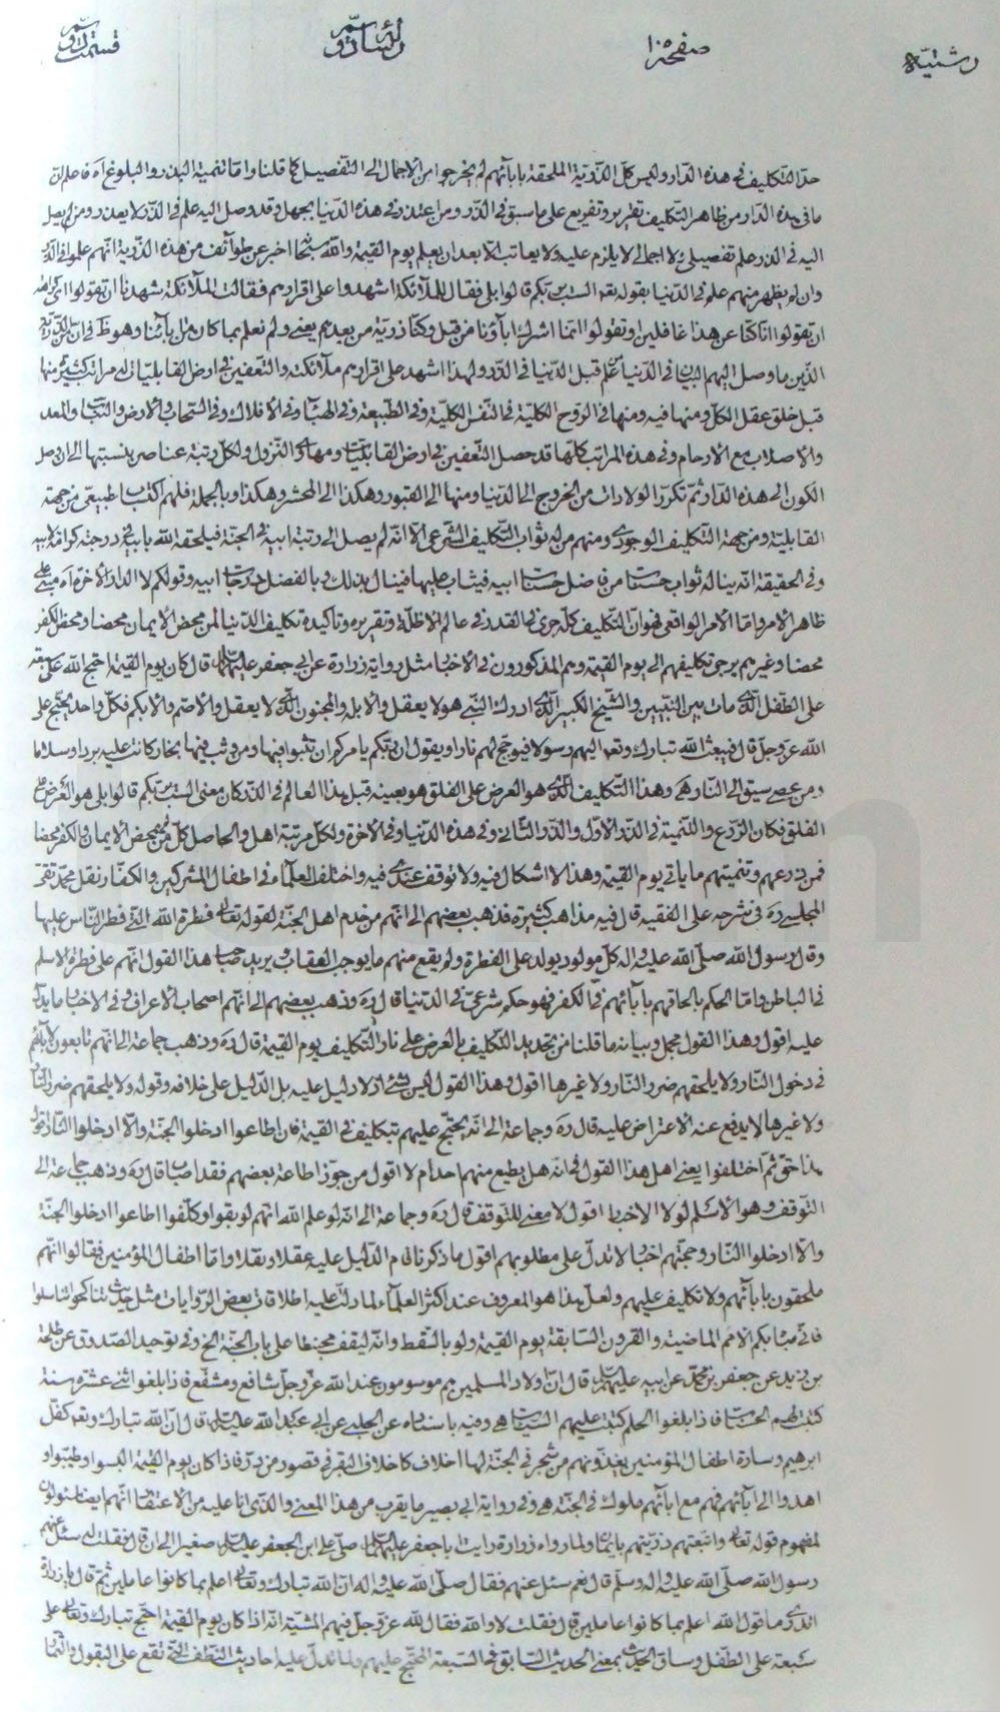 رشتيه صفحه ١٠٥ رساله قسمت دوم
حدّ التكليف فى هذه الدار وليس كل الذرّية الملحقة بابائهم لم يخرجوا من الاجمال الى التفصيل كما قلنا وامّا تنمية البذر والبلوغ آه فاعلم ان
ما فى هذه الدار من ظاهر التكليف تقرير وتفريع على ما سبق فى الذر ومن اعتذر فى هذه الدنيا بجهل وقد وصل اليه علم فى الذر لا يعذر ومن لم يصل
اليه فى الذر علم تفصيلى لا اجمالى لا يلزم عليه ولا يعاتب الا بعد ان يعلم يوم القيمة والله سبحانه اخبر عن طوائف من هذه الذرية انهم علموا فى الذر
وان لم يظهر منهم علم فى الدنيا بقوله تعالى الست بربكم قالوا بلى فقال للملائكة اشهدوا على اقرارهم فقالت الملائكة شهدنا ان تقولوا اى كراهة
ان تقولوا انا كنّا عن هذا غافلين او تقولوا انما اشرك اباؤنا من قبل وكنّا ذرية من بعدهم يعنى ولم نعلم بما كان من ابائنا وهو ظ فى ان الذرية
الذين ما وصل اليهم البيان فى الدنيا علم قبل الدنيا فى الذر ولهذا اشهد على اقرارهم ملائكته والتعفين فى ارض القابليات له مراتب كثيرة منها
قبل خلق عقل الكل ومنها فيه ومنها فى الروح الكلية فى النفس الكلية وفى الطبيعة وفى الهباء وفى الافلاك وفى السحاب والارض والنبات والمعدن
والاصلاب مع الارحام وفى هذه المراتب كلها قد حصل التعفين فى ارض القابليات ومهابط النزول ولكل رتبة عناصر بنسبتها الى ان وصل
الكون الى هذه الدار ثم تكرّر الولادات من الخروج الى الدنيا ومنها الى القبور وهكذا الى المحشر وهكذا وبالجملة فلهم اكتساب طبيعى من جهة
القابلية ومن جهة التكليف الوجودى ومنهم من له ثواب التكليف الشرعى الا انه لم يصل الى رتبة ابيه فى الجنة فيلحقه الله بابيه فى درجته كرامة لابيه
وفى الحقيقة انه يناله ثواب حسنات من فاضل حسنات ابيه فيثاب عليها فينال بذلك وبالفضل درجات ابيه وقولكم لا الدار الاخرة آه مبنى على
ظاهر الامر وامّا الامر الواقعى فهو ان التكليف كلّه جرى فى القدر فى عالم الاظلة وتقريره وتاكيده تكليف الدنيا لمن محض الايمان محضا ومحض الكفر
محضا وغيرهم يرجى تكليفهم الى يوم القيمة وهم المذكورون فى الاخبار مثل رواية زرارة عن ابى جعفر عليه السلام قال كان يوم القيمة احتج الله على سبعة
على الطفل الذى مات بين النبيين والشيخ الكبير الذى ادرك النبى وهو لا يعقل والابله والمجنون الذى لا يعقل والاصم والابكم فكل واحد يحتج على
الله عز وجل قال فيبعث الله تبارك وتعالى اليهم رسولا فيؤجج لهم نارا ويقول ان ربكم يامركم ان تثبوا فيها ومن وثب فيها كانت عليه بردا وسلاما
ومن عصى سيق الى النار هى وهذا التكليف الذى هو العرض على الفلق هو بعينه قبل هذا العالم فى الذر كان معنى الست بربكم قالوا بلى هو العرض على
الفلق فكان الزرع والتنمية فى الذر الاول والذر الثانى وفى هذه الدنيا وفى الاخرة ولكل مرتبة اهل والحاصل كل من لم يمحض الايمان والكفر محضا
فمن زرعهم وتنميتهم ما ياتى يوم القيمة وهذا لا اشكال فيه ولا توقف عندى فيه واختلف العلماء فى اطفال المشركين والكفار نقل محمد تقى
المجلسى ره فى شرحه على الفقيه قال فيه مذاهب كثيرة فذهب بعضهم الى انهم من خدم اهل الجنة لقوله تعالى فطرة الله التى فطر الناس عليها
وقال رسول الله صلى الله عليه واله كل مولود يولد على الفطرة ولم يقع منهم ما يوجب العقاب يريد صاحب هذا القول انهم على فطرة الاسلام
فى الباطن وامّا الحكم بالحاقهم بابائهم فى الكفر فهو حكم شرعى فى الدنيا قال ره وذهب بعضهم الى انهم اصحاب الاعراف وفى الاخبار ما يدل
عليه اقول وهذا القول مجمل وبيانه ما قلنا من تجديد التكليف بالعرض على نار التكليف يوم القيمة قال ره وذهب جماعة الى انهم تابعون لابائهم
فى دخول النار ولا يلحقهم ضرر النار ولا غيرها اقول وهذا القول ليس بشئ اذ لا دليل عليه بل الدليل على خلافه وقوله ولا يلحقهم ضرر النار
ولا غيرها لا يدفع عنه الاعتراض عليه قال ره وجماعة الى انه يحتج عليهم بتكليف فى القيمة فان اطاعوا ادخلوا الجنة والا ادخلوا النار اقول
هذا حق ثم اختلفوا يعنى اهل هذا القول فى انه هل يطيع منهم احد ام لا اقول من جوز اطاعة بعضهم فقد اصاب قال ره وذهب جماعة الى
التوقف وهو الاسلم لولا الاخبار اقول لا معنى للتوقف قال ره وجماعة الى انه لو علم الله انهم لو بقوا وكلفوا اطاعوا ادخلوا الجنة
والا ادخلوا النار وحجتهم اخبار لا تدل على مطلوبهم اقول ما ذكرنا قام الدليل عليه عقلا ونقلا وامّا اطفال المؤمنين فقالوا انهم
ملحقون بابائهم ولا تكليف عليهم ولعل هذا هو المعروف عند اكثر العلماء لما دلت عليه اطلاقات بعض الروايات مثل حديث تناكحوا تناسلوا
فانى مباه بكم الامم الماضية والقرون السابقة يوم القيمة ولو بالسقط وانه ليقف محبنطأ على باب الجنة الخ وفى توحيد الصدوق عن طلحة
بن زيد عن جعفر بن محمد عن ابيه عليهما السلام قال ان اولاد المسلمين هم موسومون عند الله عز وجل شافع ومشفع فاذا بلغوا اثنى عشرة سنة
كتبت لهم الحسنات فاذا بلغوا الحلم كتبت عليهم السيئات هى وفيه باسناده عن الحلبى عن ابى عبد الله عليه السلام قال ان الله تبارك وتعالى كفل
ابرهيم وسارة اطفال المؤمنين يغذونهم من شجر فى الجنة لها اخلاف كاخلاف البقر فى قصور من در فاذا كان يوم القيمة البسوا وطيبوا و
اهدوا الى ابائهم فهم مع ابائهم ملوك فى الجنة هى وفى رواية ابى بصير ما يقرب من هذا المعنى والذى انا عليه من الاعتقاد انهم ايضا مسئولون
لمفهوم قوله تعالى واتبعتهم ذريتهم بايمان ولما رواه زرارة رايت ابا جعفر عليه السلام صلى على ابن لجعفر عليه السلام صغير الى ان قال فقلت له سئل عنهم
رسول الله صلى الله عليه واله وسلم قال نعم سئل عنهم فقال صلى الله عليه واله ان الله تبارك وتعالى اعلم بما كانوا عاملين ثم قال يا زرارة
اتدرى ما قول الله اعلم بما كانوا عاملين قال فقلت لا والله فقال لله عز وجل فيهم المشية انه اذا كان يوم القيمة احتج تبارك وتعالى على
سبعة على الطفل وساق الحديث بمعنى الحديث السابق فى السبعة المحتج عليهم ولما تدل عليه احاديث النطف التى تقع على البقول والثمار